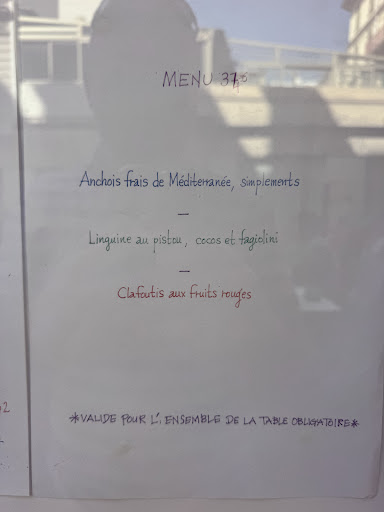 MENU 37,50
Anchois frais de Méditerranée, simplements
—
Linguine au pistou, cocos et fagiolini
—
Clafoutis aux fruits rouges
*VALIDE POUR L', ENSEMBLE DE LA TABLE OBLIGATOIRE*
2